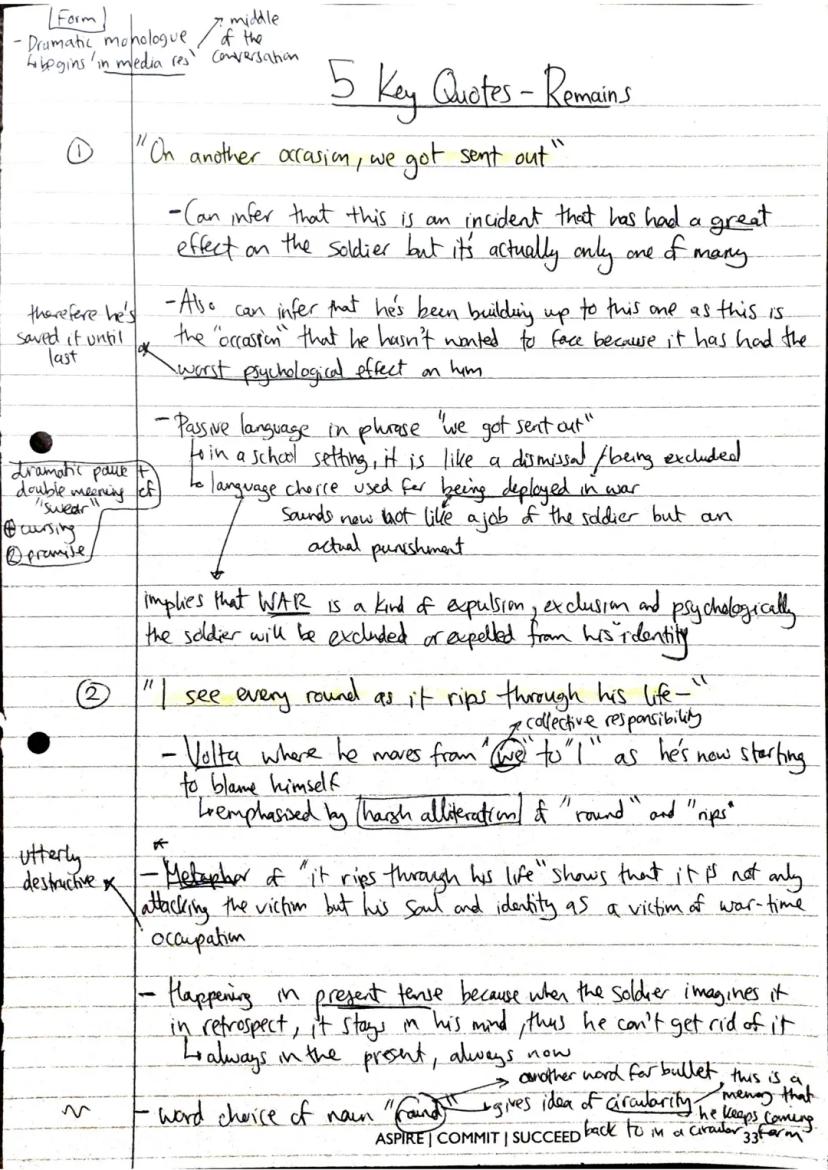 [Form]
- Dramatic monologue
↳begins 'in media res'
middle
of the
conversation
5 Key Quotes - Remains
① "On another occasion, we got sent out"
- Can infer that this is an incident that has had a great
effect on the soldier but it's actually only one of many
- Also can infer that he's been building up to this one as this is
the "occasion" that he hasn't wanted to face because it has had the
worst psychological effect on him
therefore he's
saved it until
last
- Passive language in phrase "we got sent out"
↳in a school setting, it is like a dismissal/being excluded
↳language choice used for being deployed in war
sounds now not like a job of the soldier but an
actual punishment
dramatic pause +
double meaning of
"swear"
① cursing
② promise
implies that WAR is a kind of expulsion, exclusion and psychologically
the soldier will be excluded or expelled from his identity
② "I see every round as it rips through his life-"
collective responsibility
- Volta where he moves from "we" to "I" as he's now starting
to blame himself
↳emphasised by harsh alliteration of "round" and "rips"
utterly
destructive
- Metaphor of "it rips through his life" shows that it is not only
attacking the victim but his soul and identity as a victim of war-time
occupation
- Happening in present tense because when the soldier imagines it
in retrospect, it stays in his mind, thus he can't get rid of it
↳always in the present, always now
- word choice of noun "round"
another word for bullet
gives idea of circularity
this is a
memory that
he keeps coming
back to in a circular form
ASPIRE | COMMIT | SUCCEED
33